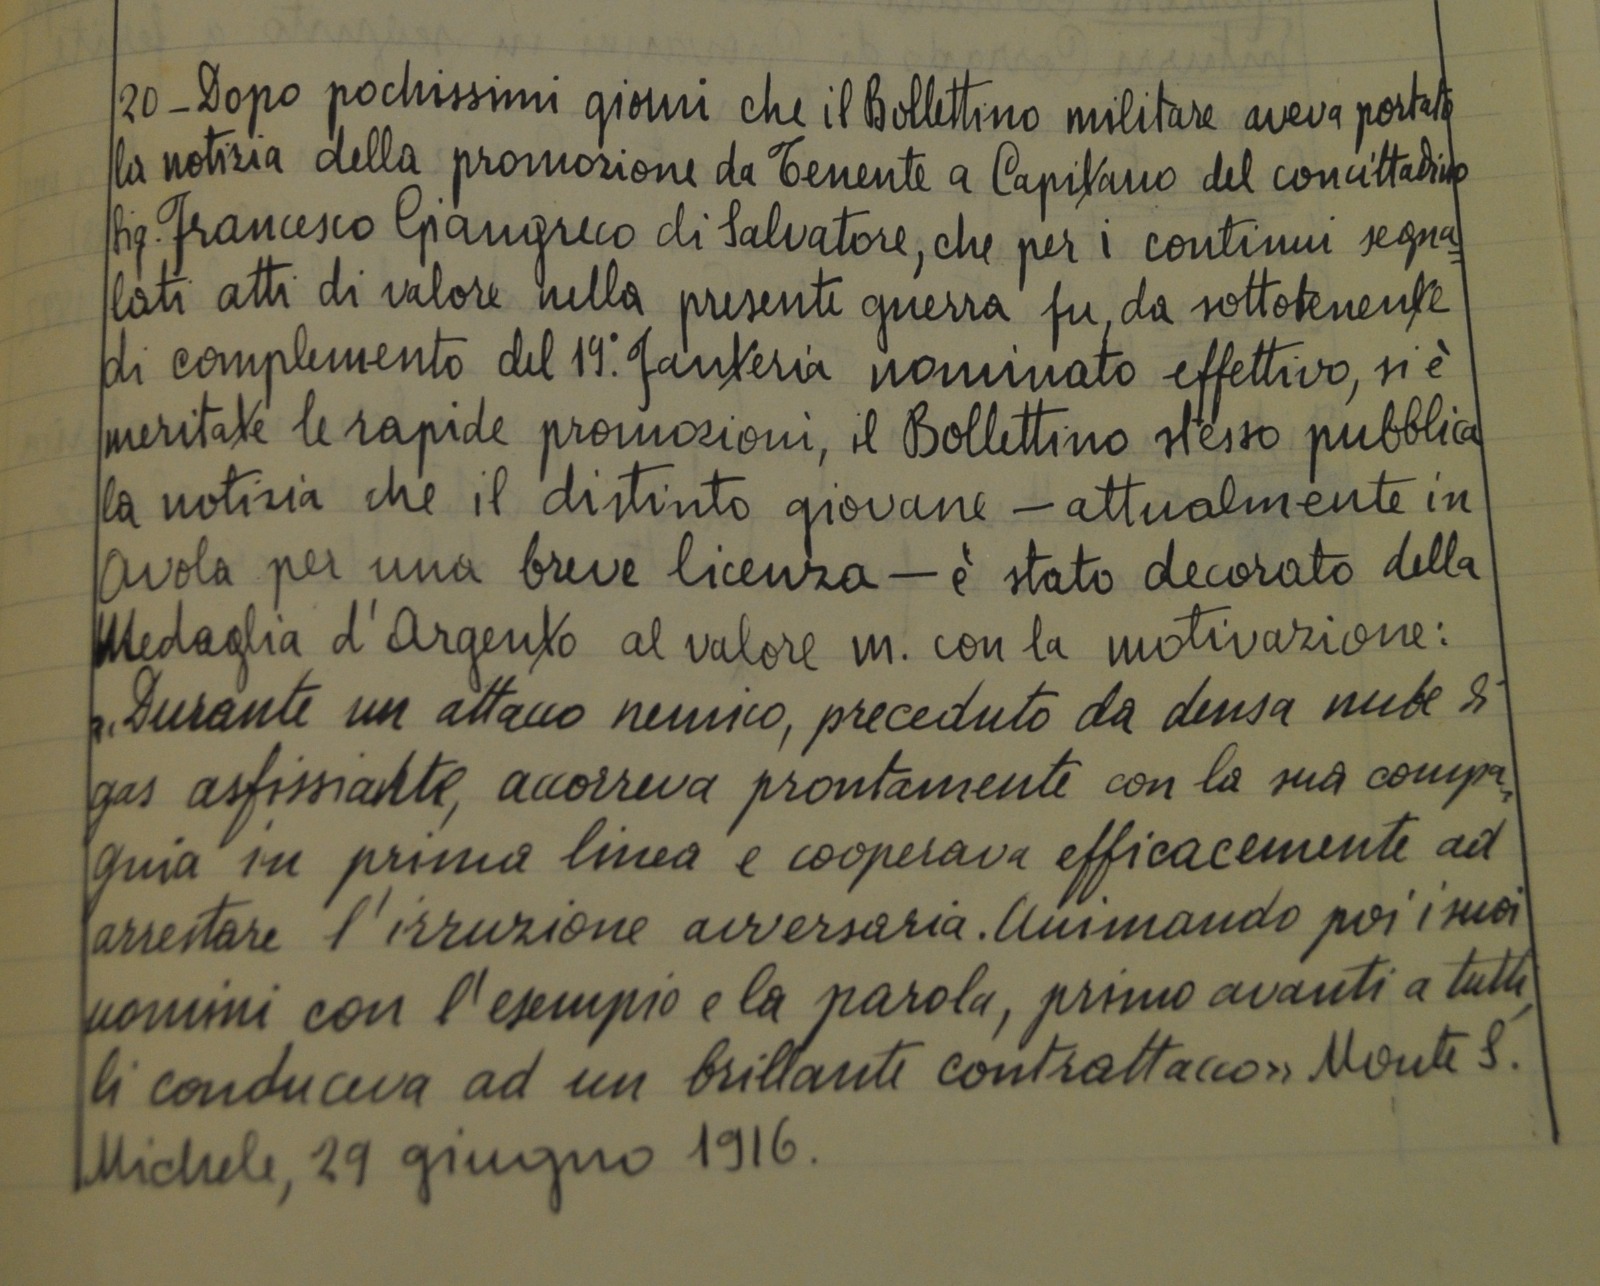 20 – Dopo pochissimi giorni che il Bollettino militare aveva portato
la notizia della promozione da Tenente a Capitano del concittadino
Sig. Francesco Giangreco di Salvatore, che per i continui segna=
lati atti di valore nella presente guerra fu, da sottotenente
di complemento del 19°. Fanteria nominato effettivo, si è
meritate le rapide promozioni, il Bollettino stesso pubblica
la notizia che il distinto giovane – attualmente in
Avola per una breve licenza – è stato decorato della
Medaglia d'Argento al valore m. con la motivazione:
"Durante un attacco nemico, preceduto da densa nube di
gas asfissiante, accorreva prontamente con la sua compa=
gnia in prima linea e cooperava efficacemente ad
arrestare l'irruzione avversaria. Animando poi i suoi
uomini con l'esempio e la parola, primo avanti a tutti,
li conduceva ad un brillante contrattacco» Monte S.
Michele, 29 giugno 1916.